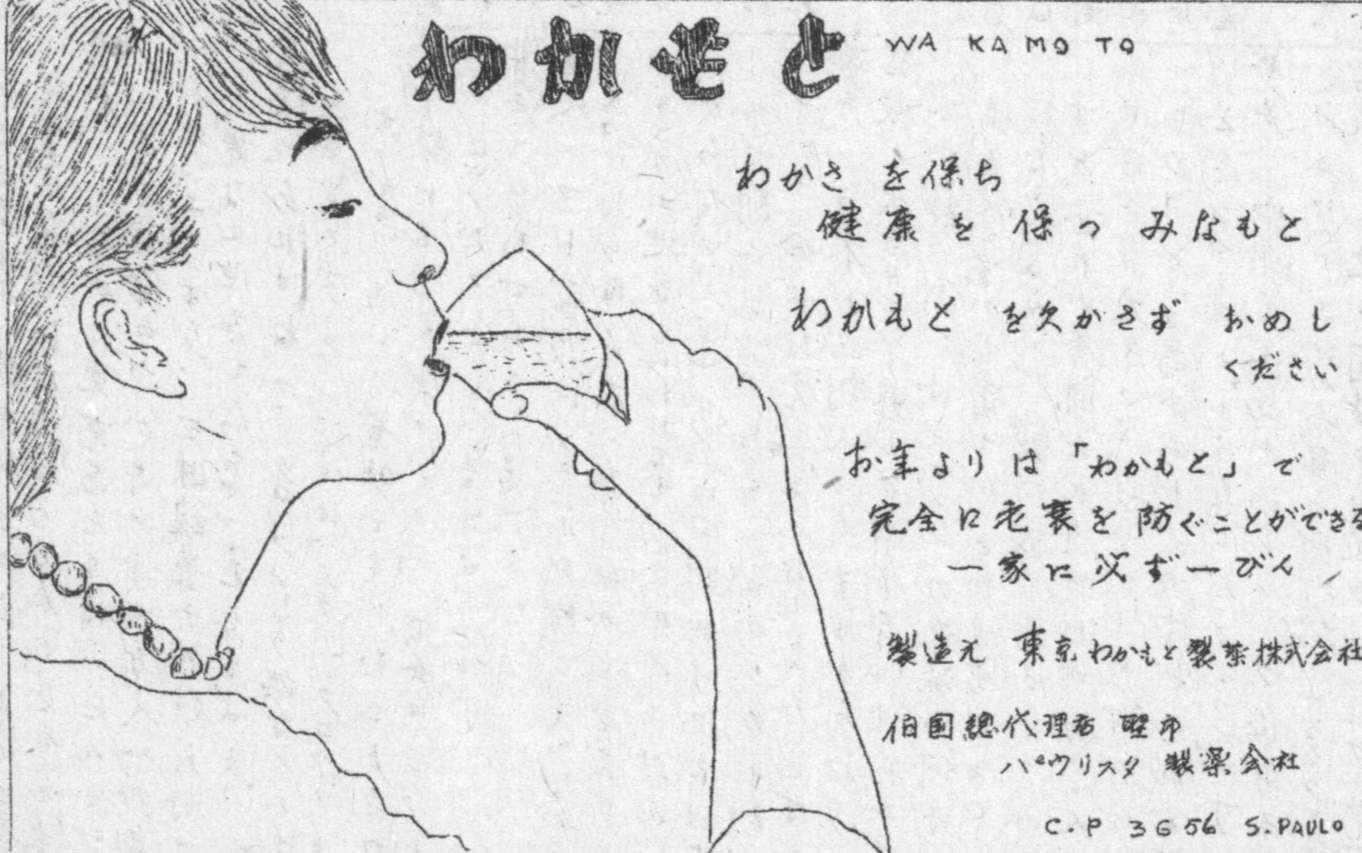 わかもと WA KA MO TO
わかさ を保ち
健康を保つ みなもと
わかもと を欠かさず おめし
ください
お年よりは「わかもと」で
完全に老衰を防ぐことができる
一家に必ず一びん
製造元 東京わかもと製薬株式会社
伯国總代理店 聖市
パウリスタ 製薬会社
C.P 3656 S.PAULO